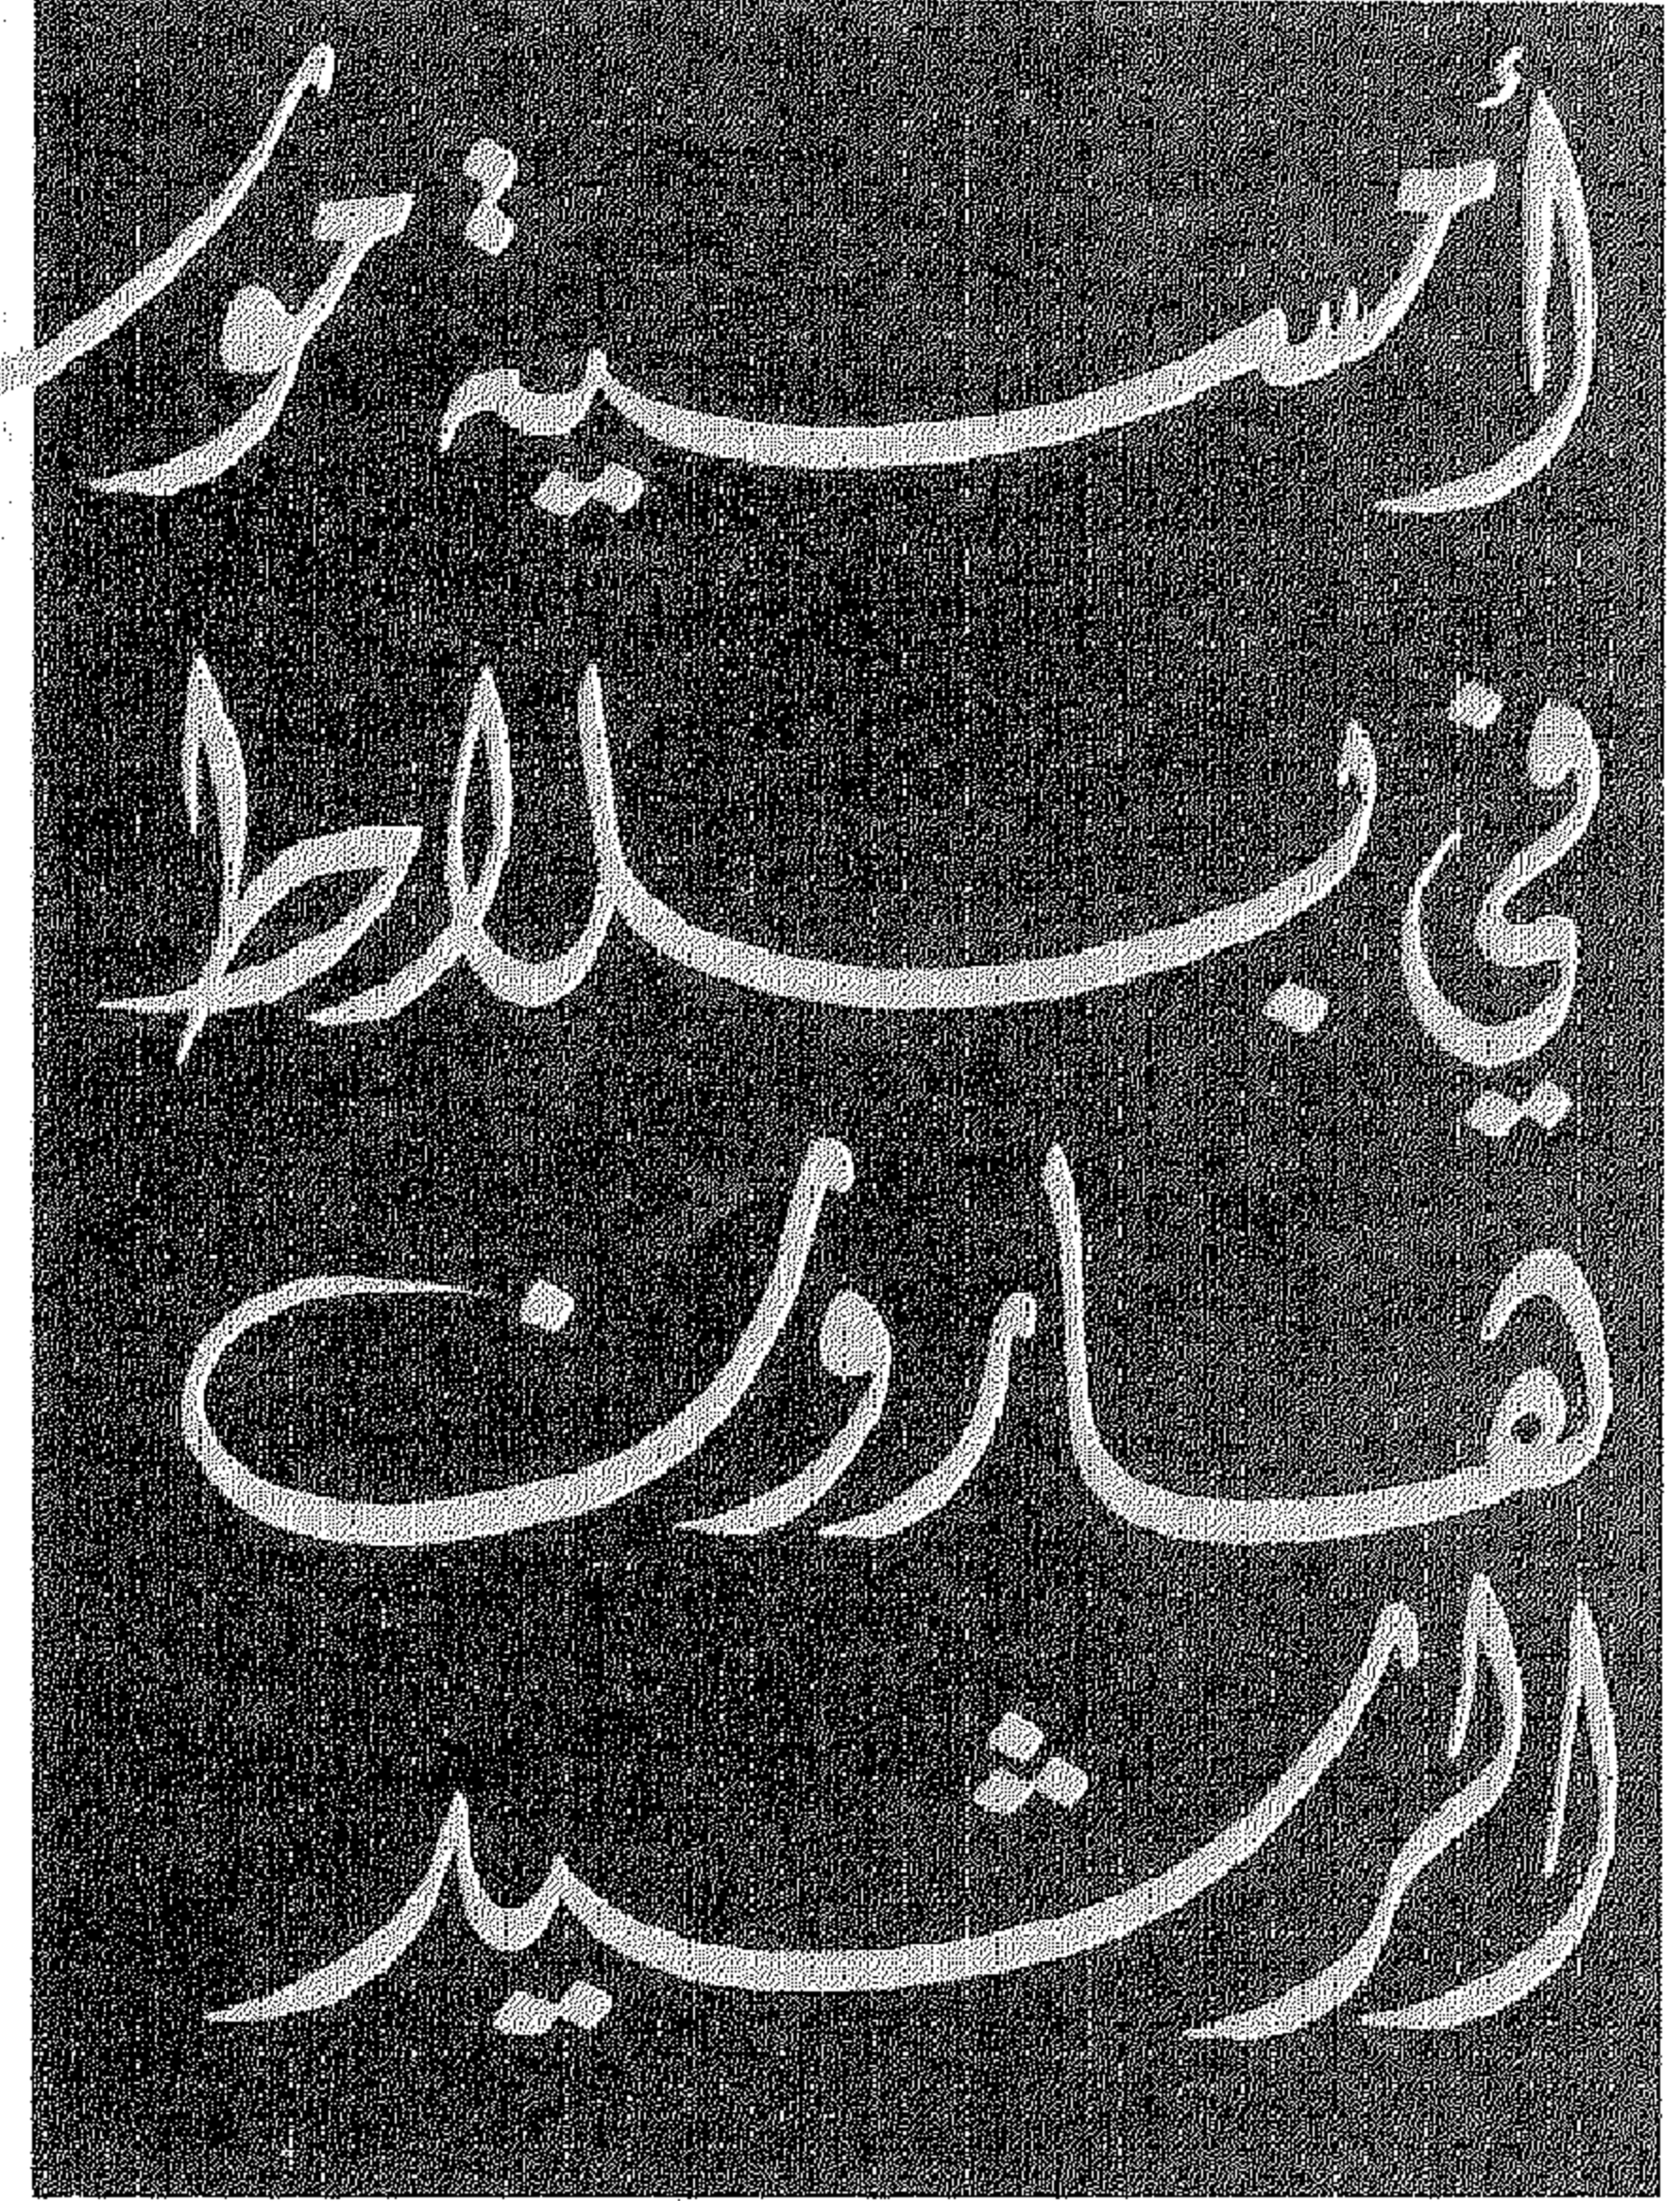 أمسية
في بلاط
هارون
الرشيد